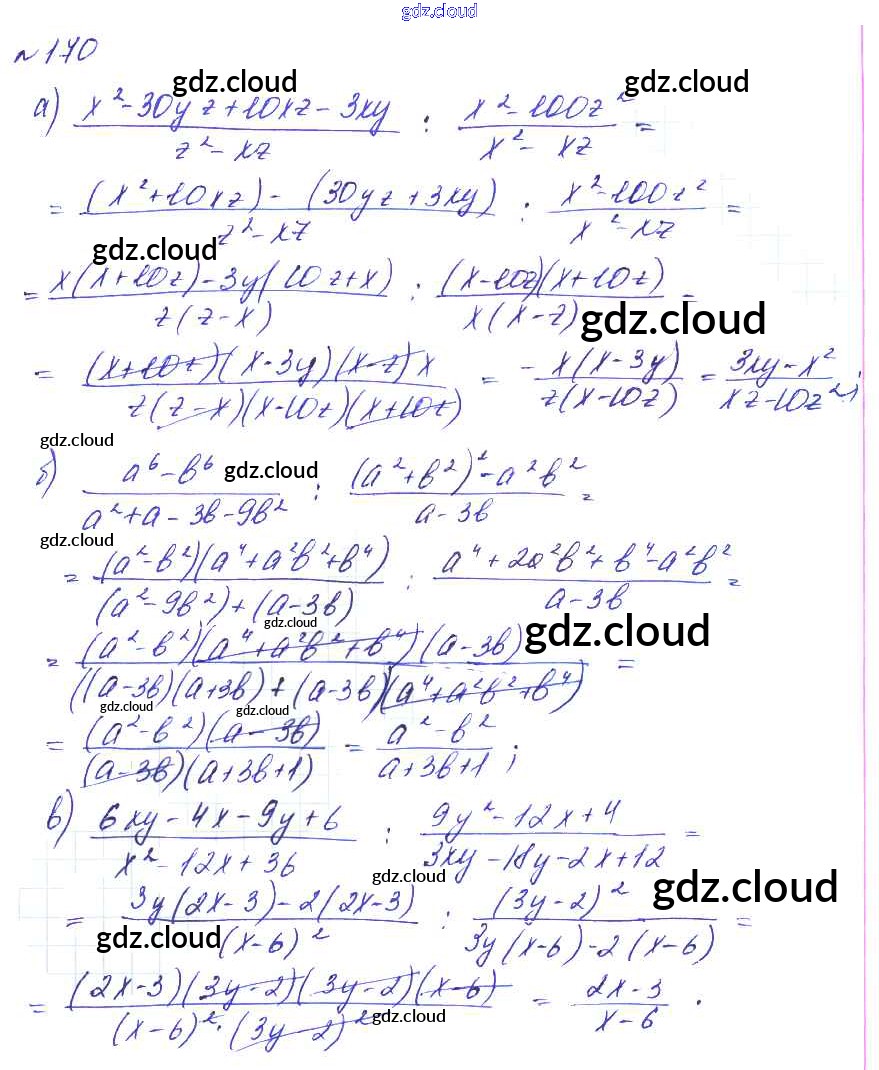 gdz.cloud
№170
gdz.cloud gdz.cloud
а) (x² - 30yz + 10xz - 3xy)/(z² - xz) : (x² - 100z²)/(x² - xz) =
= ((x² + 10xz) - (30yz + 3xy))/(z² - xz) : (x² - 100z²)/(x² - xz) =
gdz.cloud
= (x(x + 10z) - 3y(10z + x))/(z(z - x)) : ((x - 10z)(x + 10z))/(x(x - z)) =
gdz.cloud
= ((x + 10z)(x - 3y)(x - z)x)/(z(z - x)(x - 10z)(x + 10z)) = - (x(x - 3y))/(z(x - 10z)) = (3xy - x²)/(xz - 10z²);
gdz.cloud
б) (a⁶ - b⁶)/(a² + a - 3b - 9b²) : ((a² + b²)² - a²b²)/(a - 3b) =
gdz.cloud
gdz.cloud
= ((a² - b²)(a⁴ + a²b² + b⁴))/((a² - 9b²) + (a - 3b)) : (a⁴ + 2a²b² + b⁴ - a²b²)/(a - 3b) =
gdz.cloud gdz.cloud
= ((a² - b²)(a⁴ + a²b² + b⁴)(a - 3b))/(((a - 3b)(a + 3b) + (a - 3b)(a⁴ + a²b² + b⁴)) =
gdz.cloud gdz.cloud
= ((a² - b²)(a - 3b))/((a - 3b)(a + 3b + 1)) = (a² - b²)/(a + 3b + 1);
в) (6xy - 4x - 9y + 6)/(x² - 12x + 36) : (9y² - 12x + 4)/(3xy - 18y - 2x + 12) =
gdz.cloud gdz.cloud
= (3y(2x - 3) - 2(2x - 3))/((x - 6)²) : ((3y - 2)²)/(3y(x - 6) - 2(x - 6)) =
gdz.cloud
= ((2x - 3)(3y - 2)(3y - 2)(x - 6))/((x - 6)² · (3y - 2)²) = (2x - 3)/(x - 6).
gdz.cloud